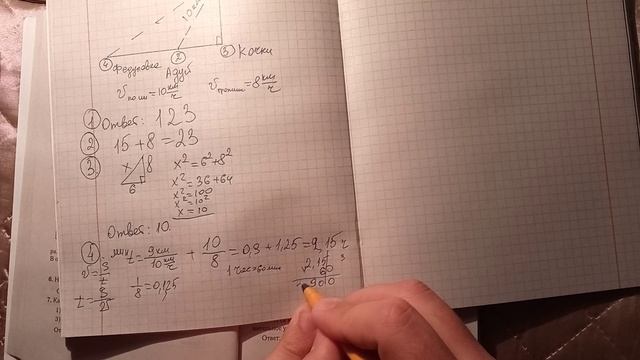 10 км
④ Федуровка
② Адуй
③ Кочки
v по ш = 10 км/ч
v тропинк = 8 км/ч
① Ответ: 123
② 15 + 8 = 23
③ x 8
6
x² = 6² + 8²
x² = 36 + 64
x² = 100
x² = 10²
x = 10
Ответ: 10.
④ t = 9 км / 10 км/ч + 10/8 = 0,9 + 1,25 = 2,15 ч
v = S/t
t = S/v
1/8 = 0,125
2,15
60
900